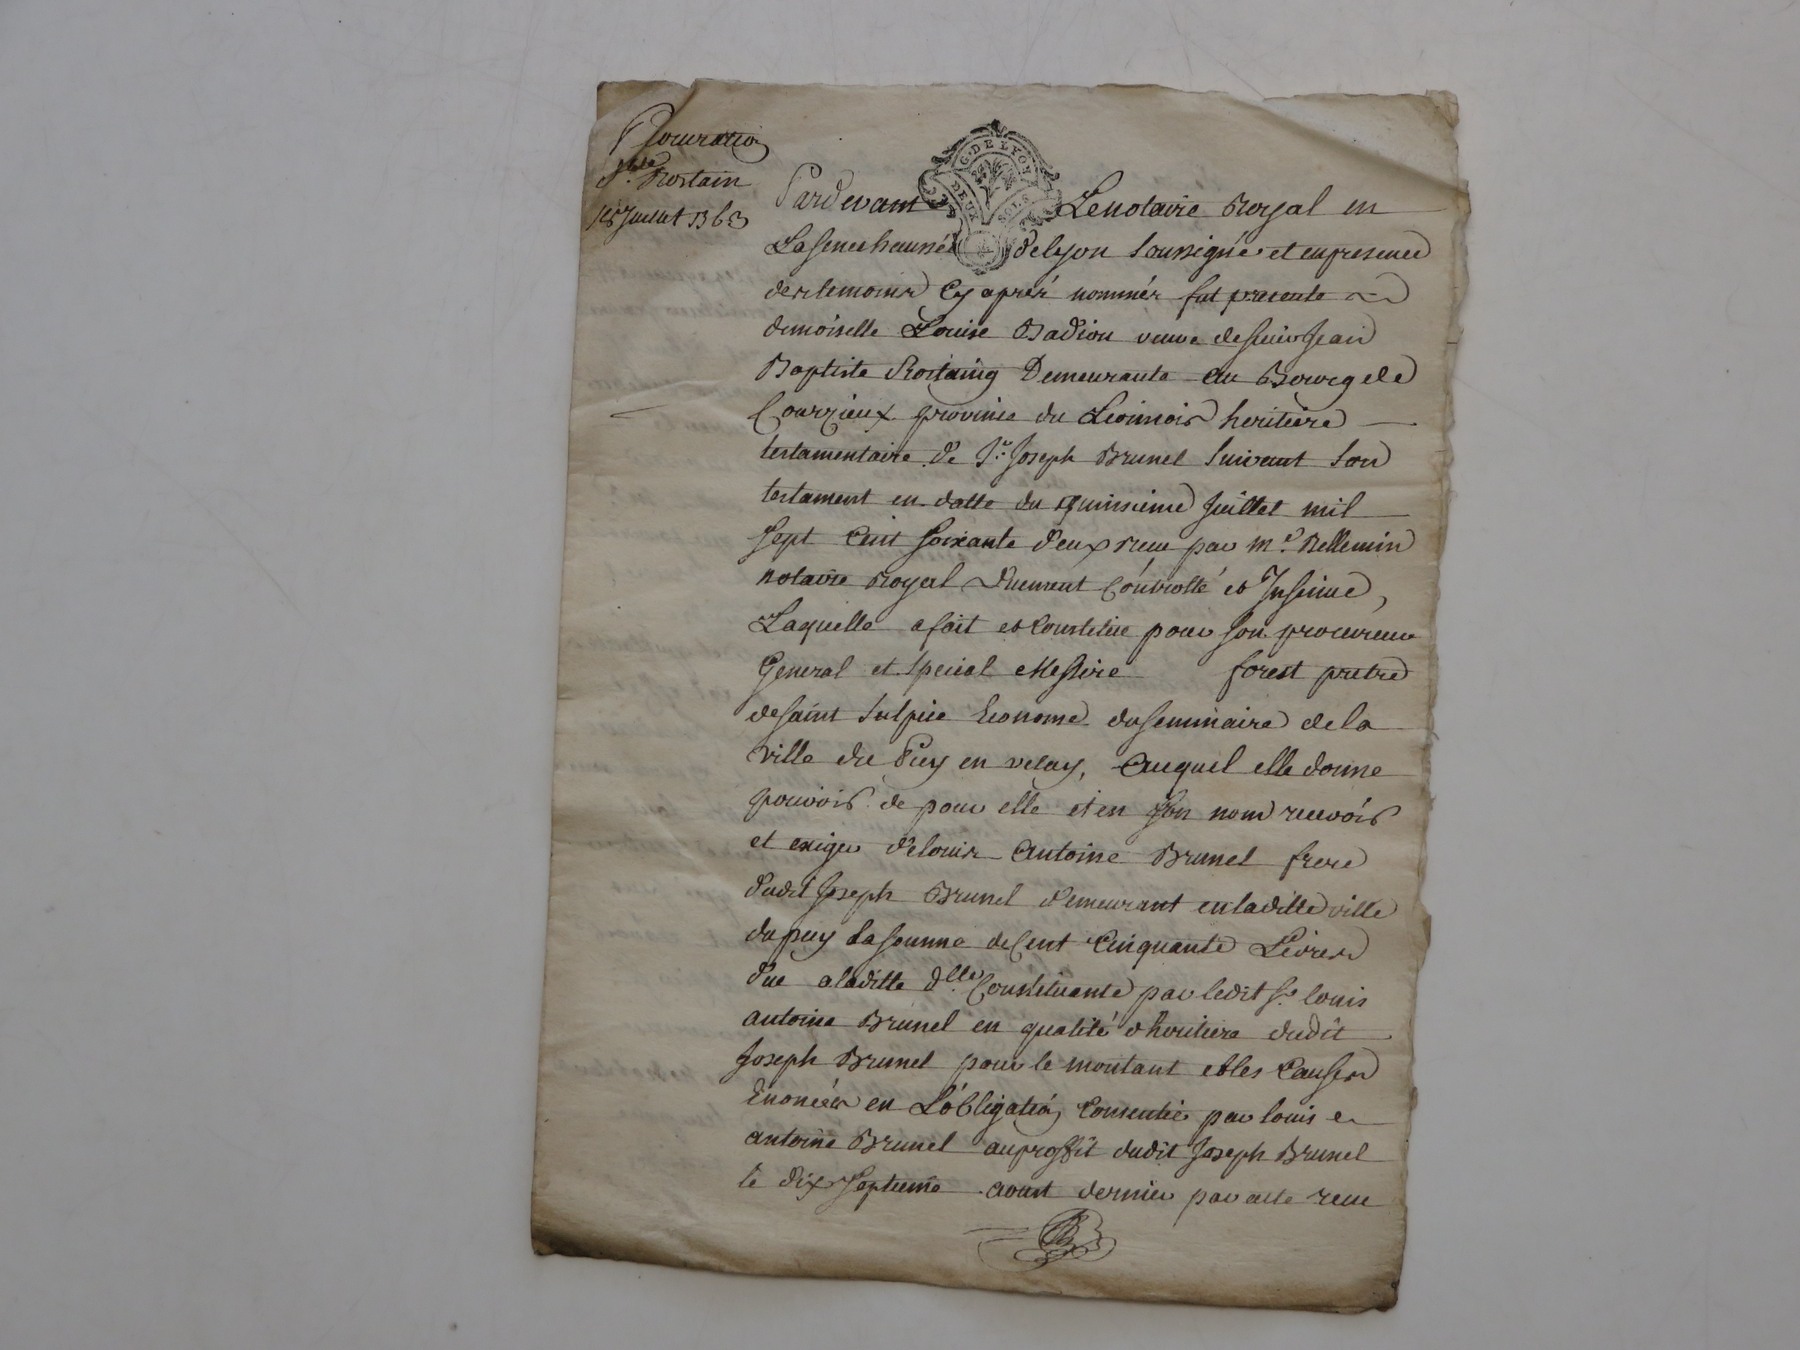 Procuration
Rostain
1763
G. DE LYON
DEUX SOLS
Pardevant Le notaire Royal en
La seneschaussée de lyon soussigné et en presence
des temoins cy aprés nommés fut presente
demoiselle Louise Badiou veuve de sieur Jean
Baptiste Rostaing Demeurante au Bourg de
Courzieux province du Lionnois heritiere
testamentaire de Sr. Joseph Brunel suivant son
testament en datte du quinsieme Juillet mil
sept cent soixante deux reçu par me. Bellemin
notaire Royal duement Controllé et Insinué,
Laquelle a fait et constitué pour son procureur
General et special Messire forest pretre
de saint sulpice Econome du seminaire de la
ville du Puy en velay, auquel elle donne
pouvoir de pour elle et en son nom recevoir
et exiger de louis Antoine Brunel frere
dudit Joseph Brunel demeurant en laditte ville
du puy la somme de Cent Cinquante Livres
due a laditte dlle. Constituante par ledit sr. louis
antoine Brunel en qualité d'heritiere dudit
Joseph Brunel pour le montant et les Causes
Enoncées en L'obligation Consentie par louis
antoine Brunel au proffit dudit Joseph Brunel
le dix septieme aoust dernier par acte reçu